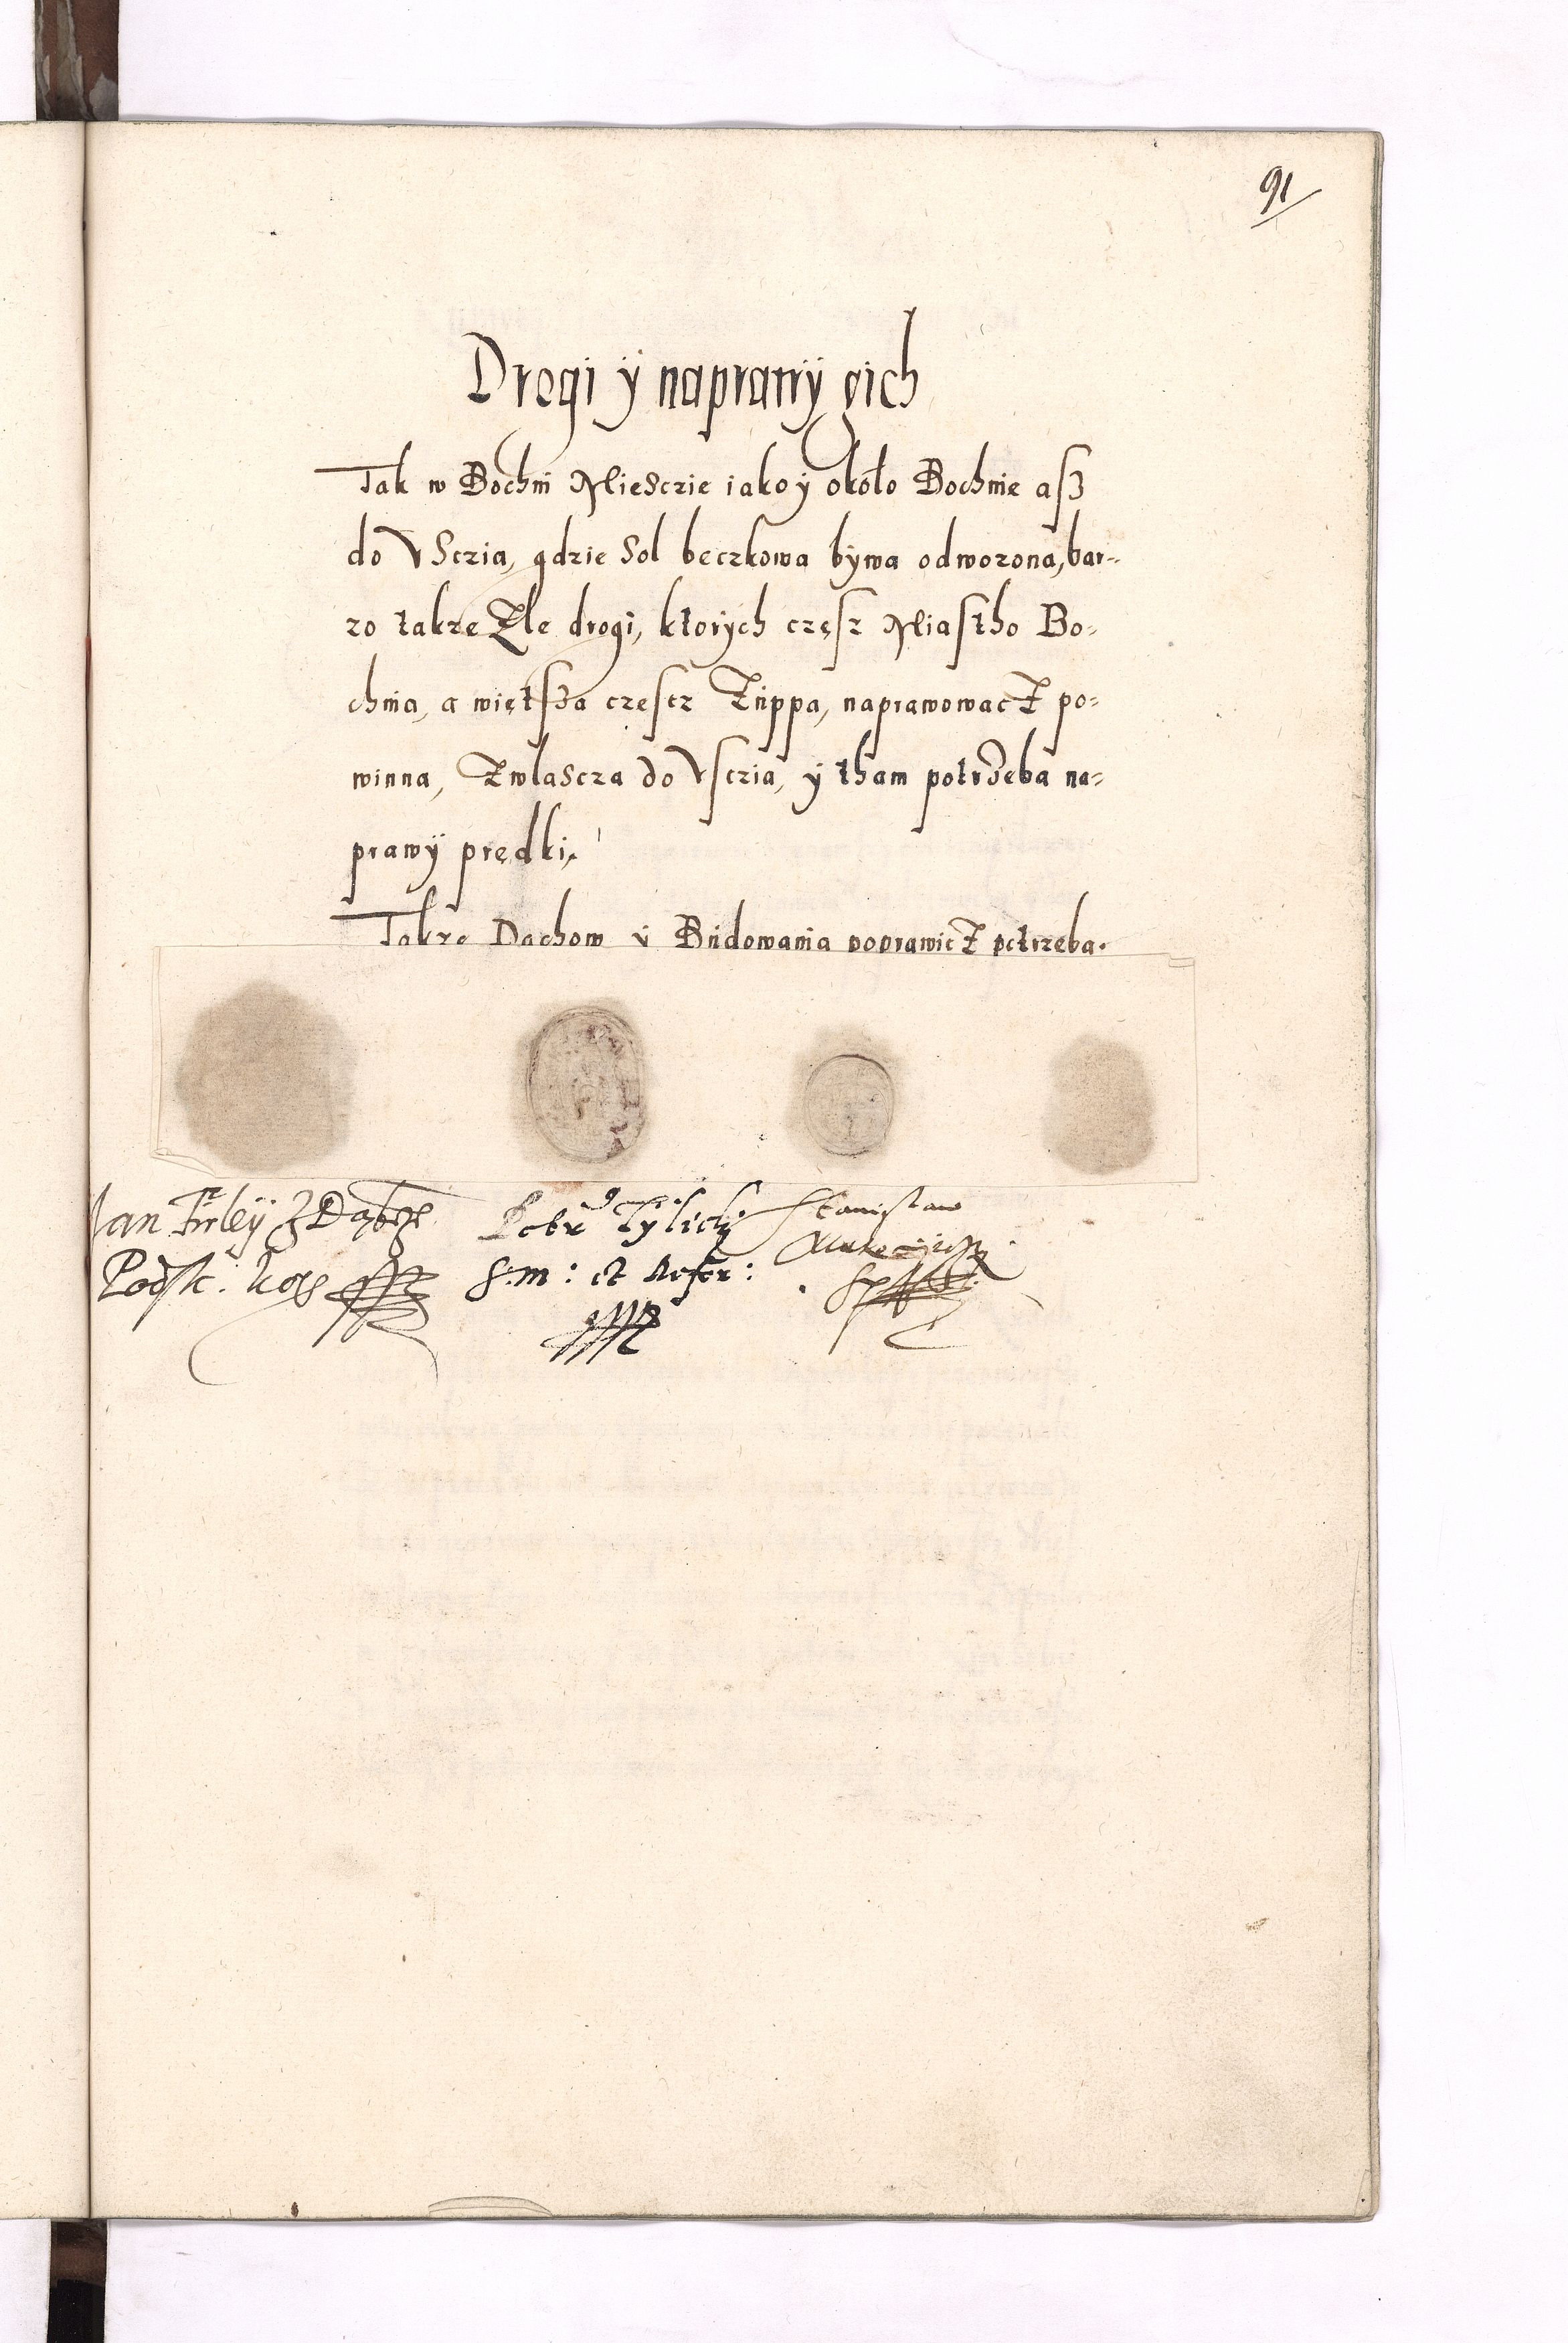 91
Drogi ÿ naprawÿ gich
Tak w Bochni Miesczie iako ÿ około Bochnie asz
do Vsczia, gdzie Sol beczkowa bÿwa odwozona, bar-
zo takze Zle drogi, ktorÿch częsz Miastho Bo-
chnia, a większa czescz Zuppa, naprawowacz po-
winna, Zwlascza do Vsczia, ÿ tham potrzeba na-
prawÿ prędki.
Takze Dachow ÿ Budowania poprawicz potrzeba.
Jan Firleÿ Z Dąbr Petr Tÿlicki Stanislaw
Podsk. Kor S. m: et Refer: